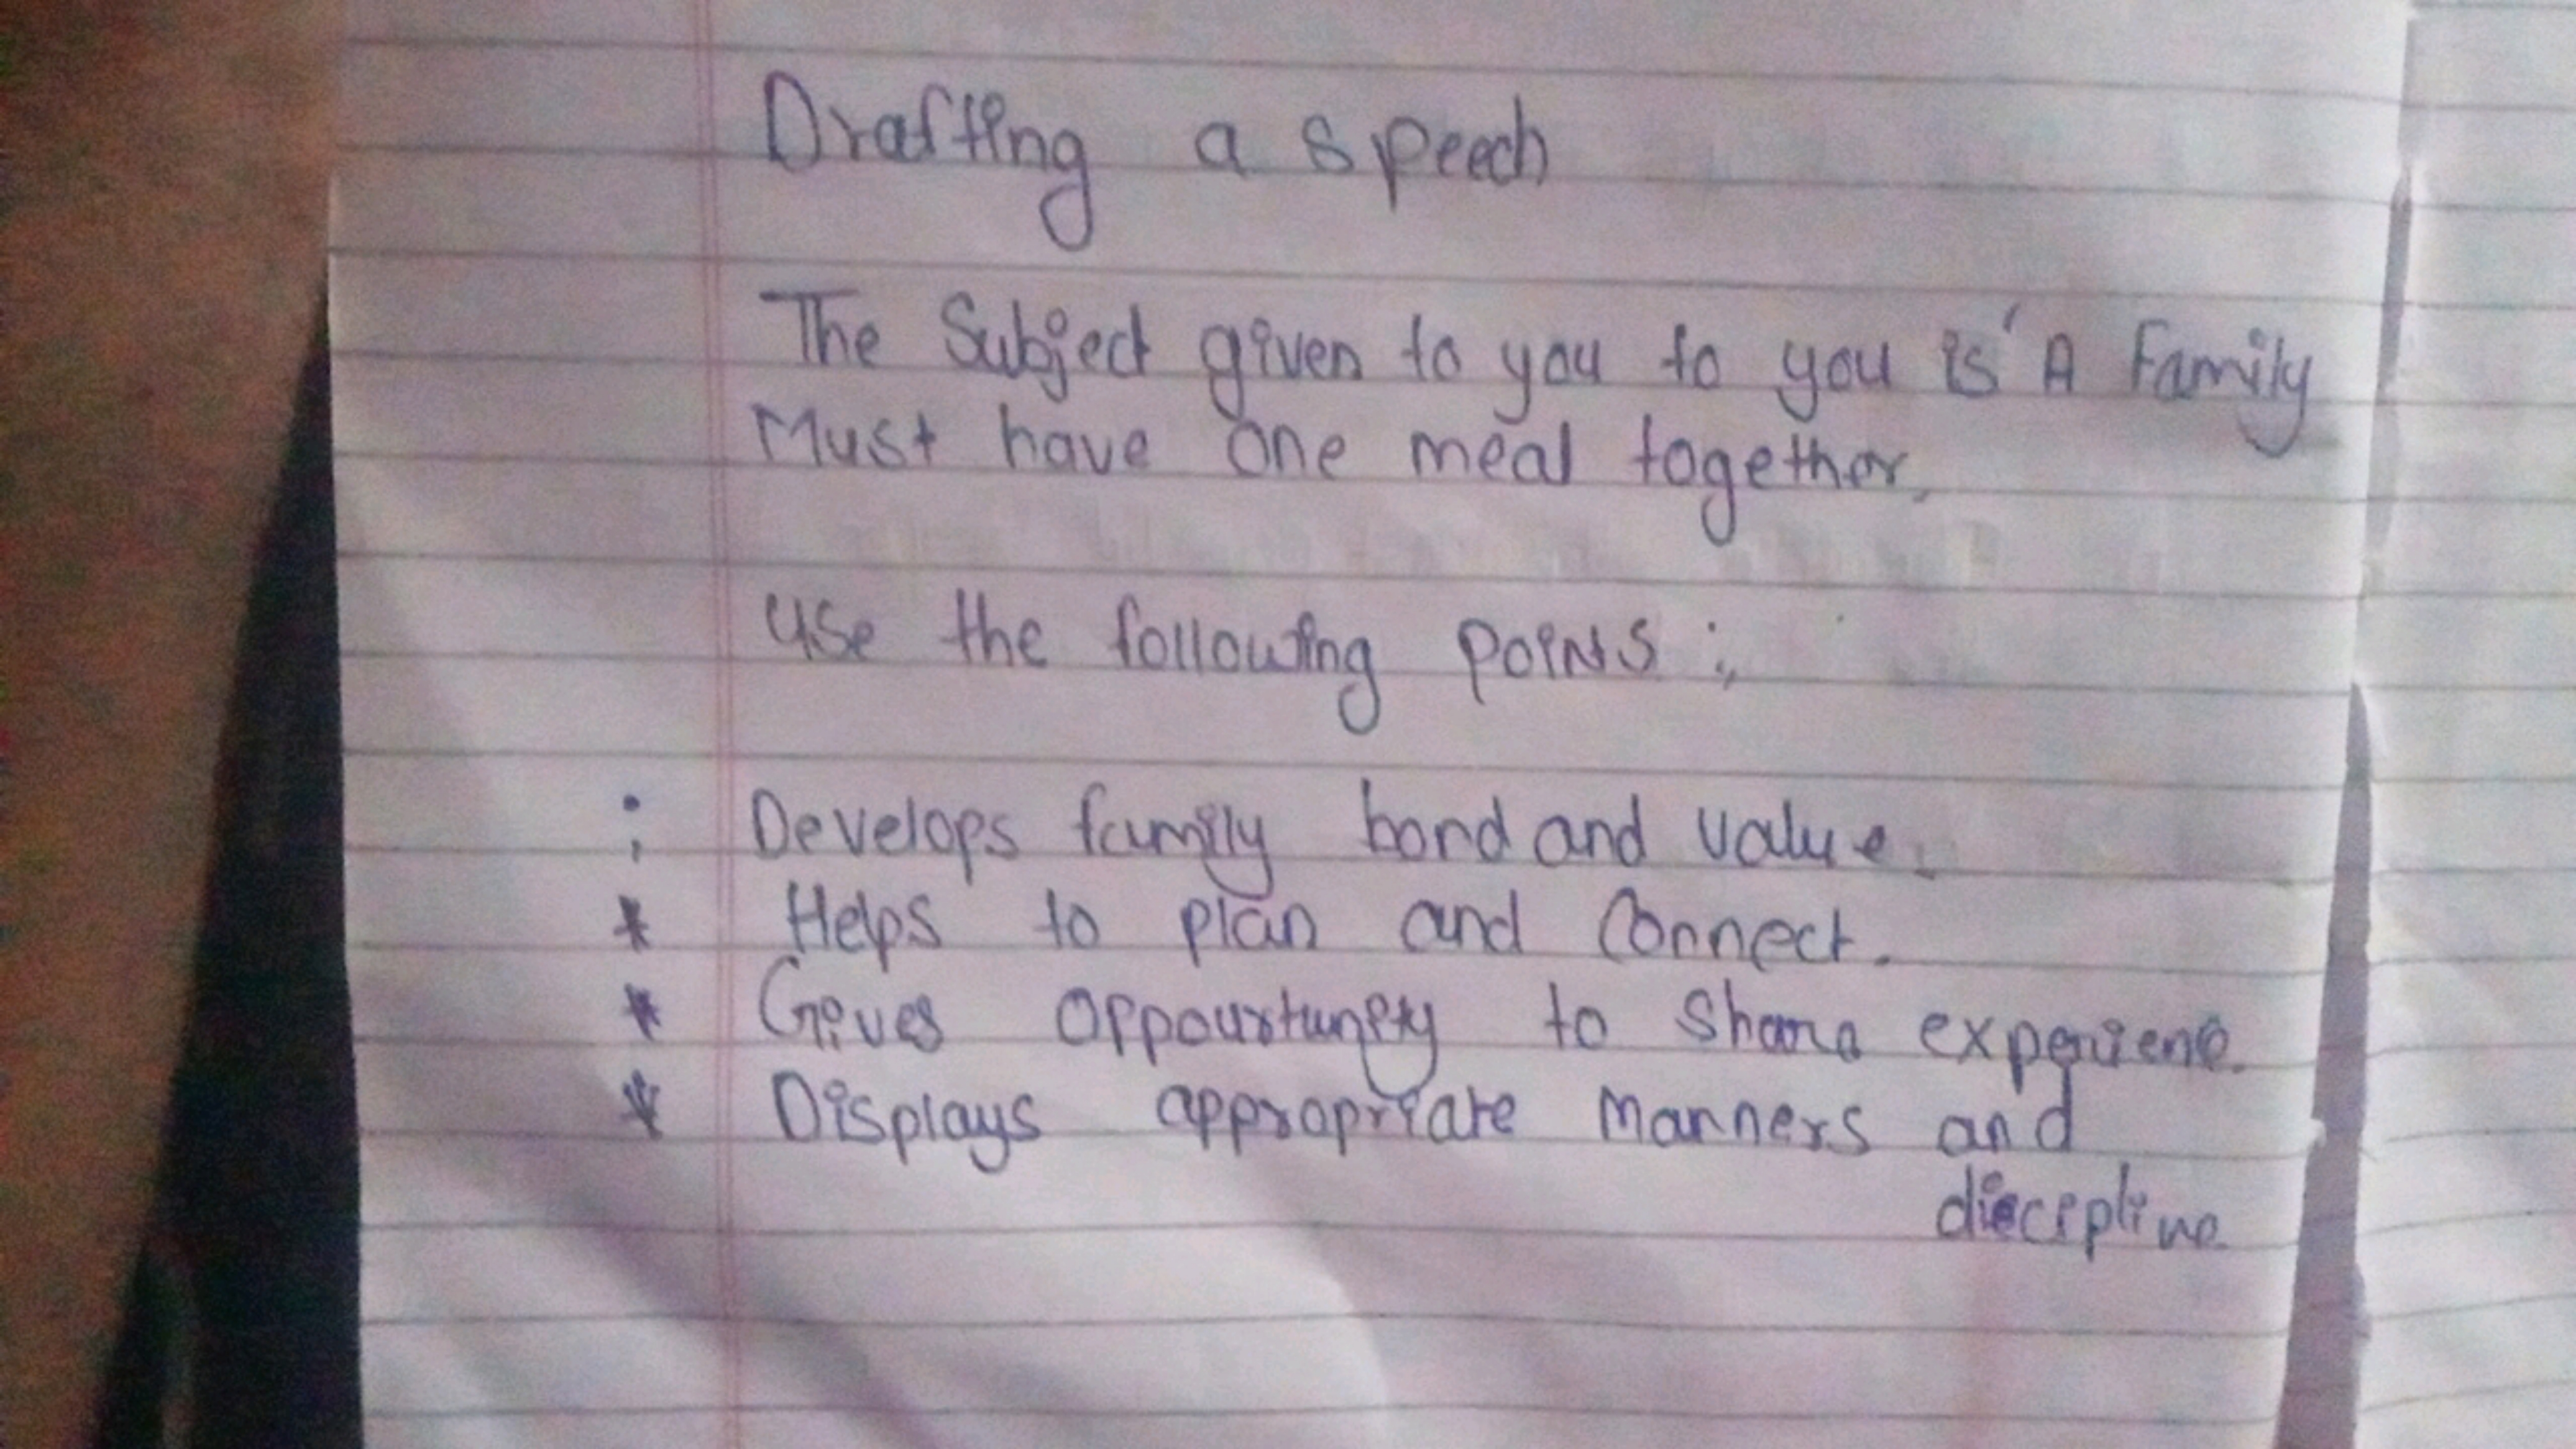 Drafting a speech
The Subject given to you to you is 'A Family
Must have one meal together.
Use the following poins :,,
: Develops family bond and value.
* Helps to plan and Connect.
* Gives oppourtunity to share experienc.
* Displays appropriate manners and
discipline